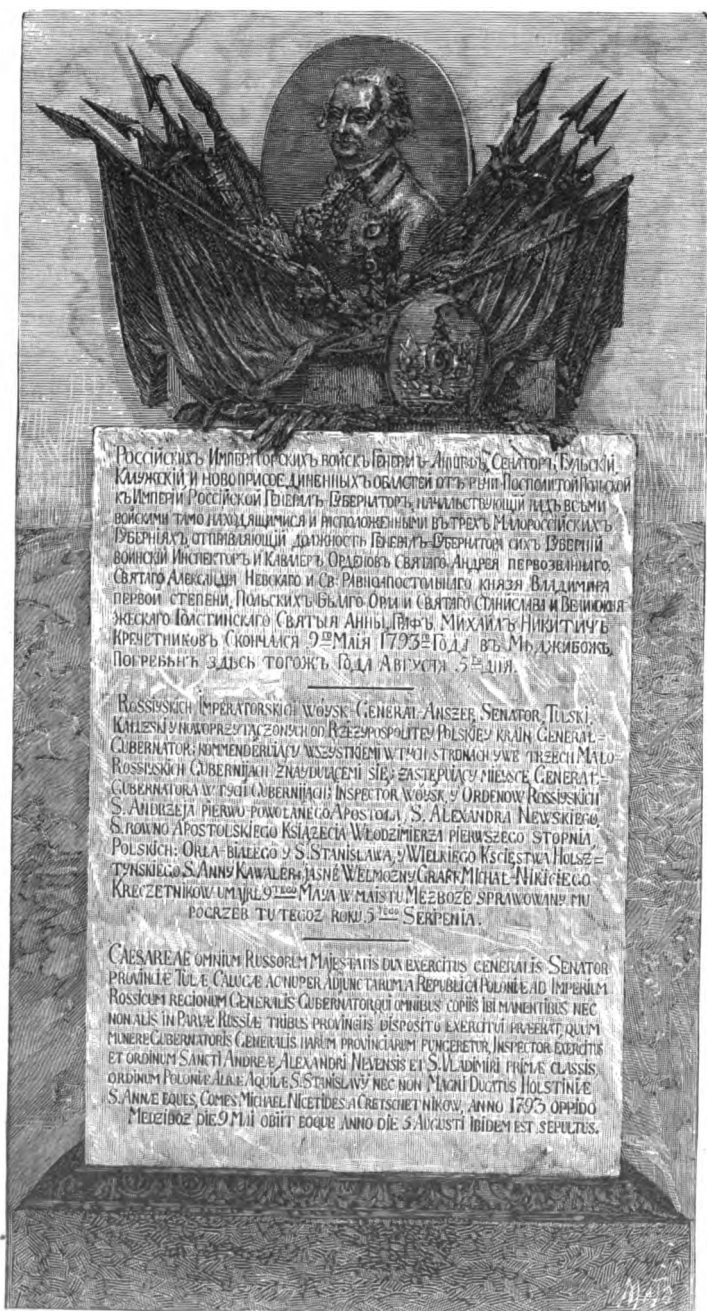 Россійскихъ Императорскихъ войск Генералъ-Аншефъ, Сенаторъ, Тульскій
Калужскій и новоприсоединенныхъ областей отъ речи-Посполитой Польской
къ Имперіи Россійской Генералъ Губернаторъ, начальствующій надъ всѣми
войсками тамо находящимися и расположенными въ трехъ Малороссійскихъ
Губерніяхъ, отправляющій должность Генералъ-Губернатора сихъ Губерній
воинскій Инспекторъ и Кавалеръ Орденовъ Святаго Андрея первозваннаго,
Святаго Александра Невскаго и Св: Равноапостольнаго князя Владимира
первой степени, Польскихъ Бѣлаго Орла и Святаго Станислава и Великокня
жескаго Голстинскаго Святыя Анны, Графъ Михайлъ Никитичъ
Кречетниковъ Скончался 9го Маія 1793го Года въ Меджибожѣ,
погребенъ здѣсь тогожъ Года Августа 5го дня.
Rossiyskich Imperatorskich woysk General-Anszef, Senator, Tulski,
Kaluzski y nowoprzyłączonych od Rzeżypospolitey Polskiey krain General=
Gubernator; kommenderuiący wszystkiemi w tych stronach y we trzech Mało-
Rossiyskich Gubernijach znayduiącemi się; zastępuiący mieysce General-
Gubernatora w tych Gubernijach; Inspector woysk, y Ordenow Rossiyskich
S. Andrzeja pierwo-powołanego Apostoła, S. Alexandra Newskiego,
S. rowno Apostolskiego Książecia Włodzimierza pierwszego stopnia,
Polskich: Orła-białego y S. Stanisława, y Wielkiego Kscięstwa Holsz=
tynskiego S. Anny Kawaler; jasne Welmożny Graff Michał-Nikiciego
Kreczetnikow umarł 9tego Maya w maistu Mezboże sprawowany mu
pogrzeb tu tegoz roku 5tego Serpenia.
Caesareae omnium Russorum Majestatis dux exercitus generalis Senator
provinciæ Tulæ Calugæ ac nuper adjunctarum a Republica Poloniæ ad Imperium
Rossicum regionum Generalis Gubernator, qui omnibus copiis ibi manentibus nec
non aliis in Parvæ Russiæ tribus provinciis disposito exercitui præerat, quum
munere Gubernatoris Generalis harum provinciarum fungeretur, Inspector exercitus
et ordinum Sancti Andreæ, Alexandri Nevensis et S. Vladimiri primæ classis,
ordinum Poloniæ Albæ Aquilæ, S. Stanislavy nec non Magni Ducatus Holstiniæ
S. Annæ eques, Comes Michael Nicetides a Cretschetnikow, anno 1793 oppido
Medziboz die 9 Mai obiit eoque anno die 5 Augusti ibidem est sepultus.